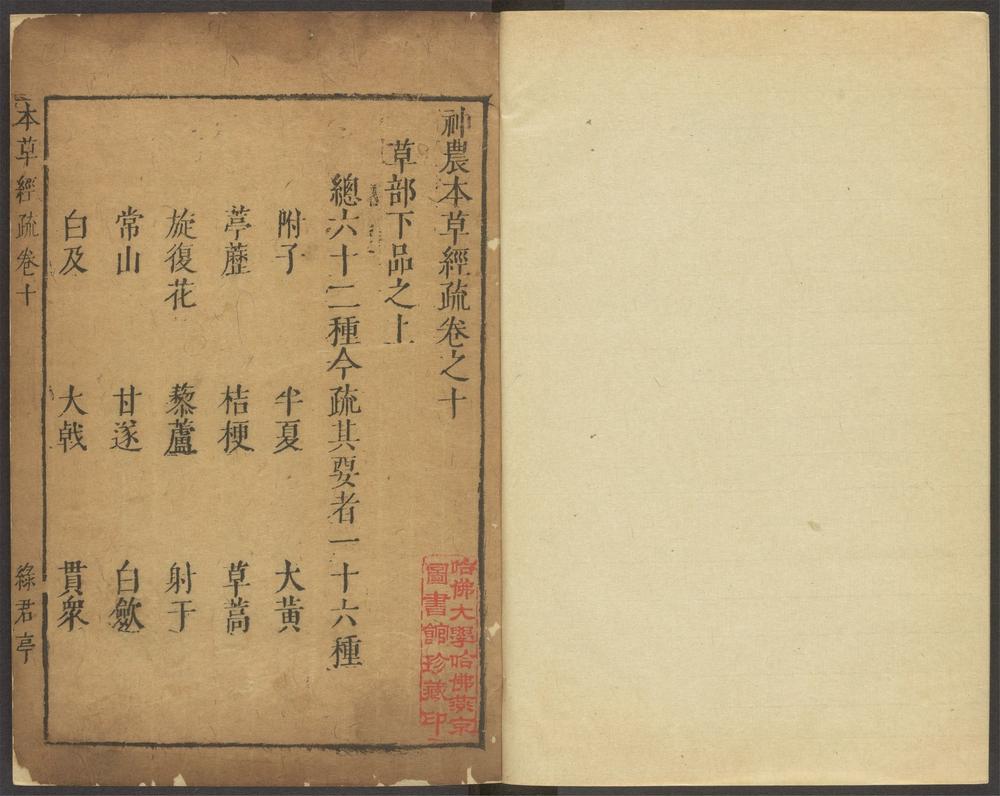 神農本草經疏卷之十
草部下品之上
總六十二種今疏其要者一十六種
附子 半夏 大黃
葶藶 桔梗 草蒿
旋復花 藜蘆 射干
常山 甘遂 白歛
白及 大戟 貫衆
本草經疏 卷十 綠君亭
哈佛大學哈佛燕京
圖書館珍藏印